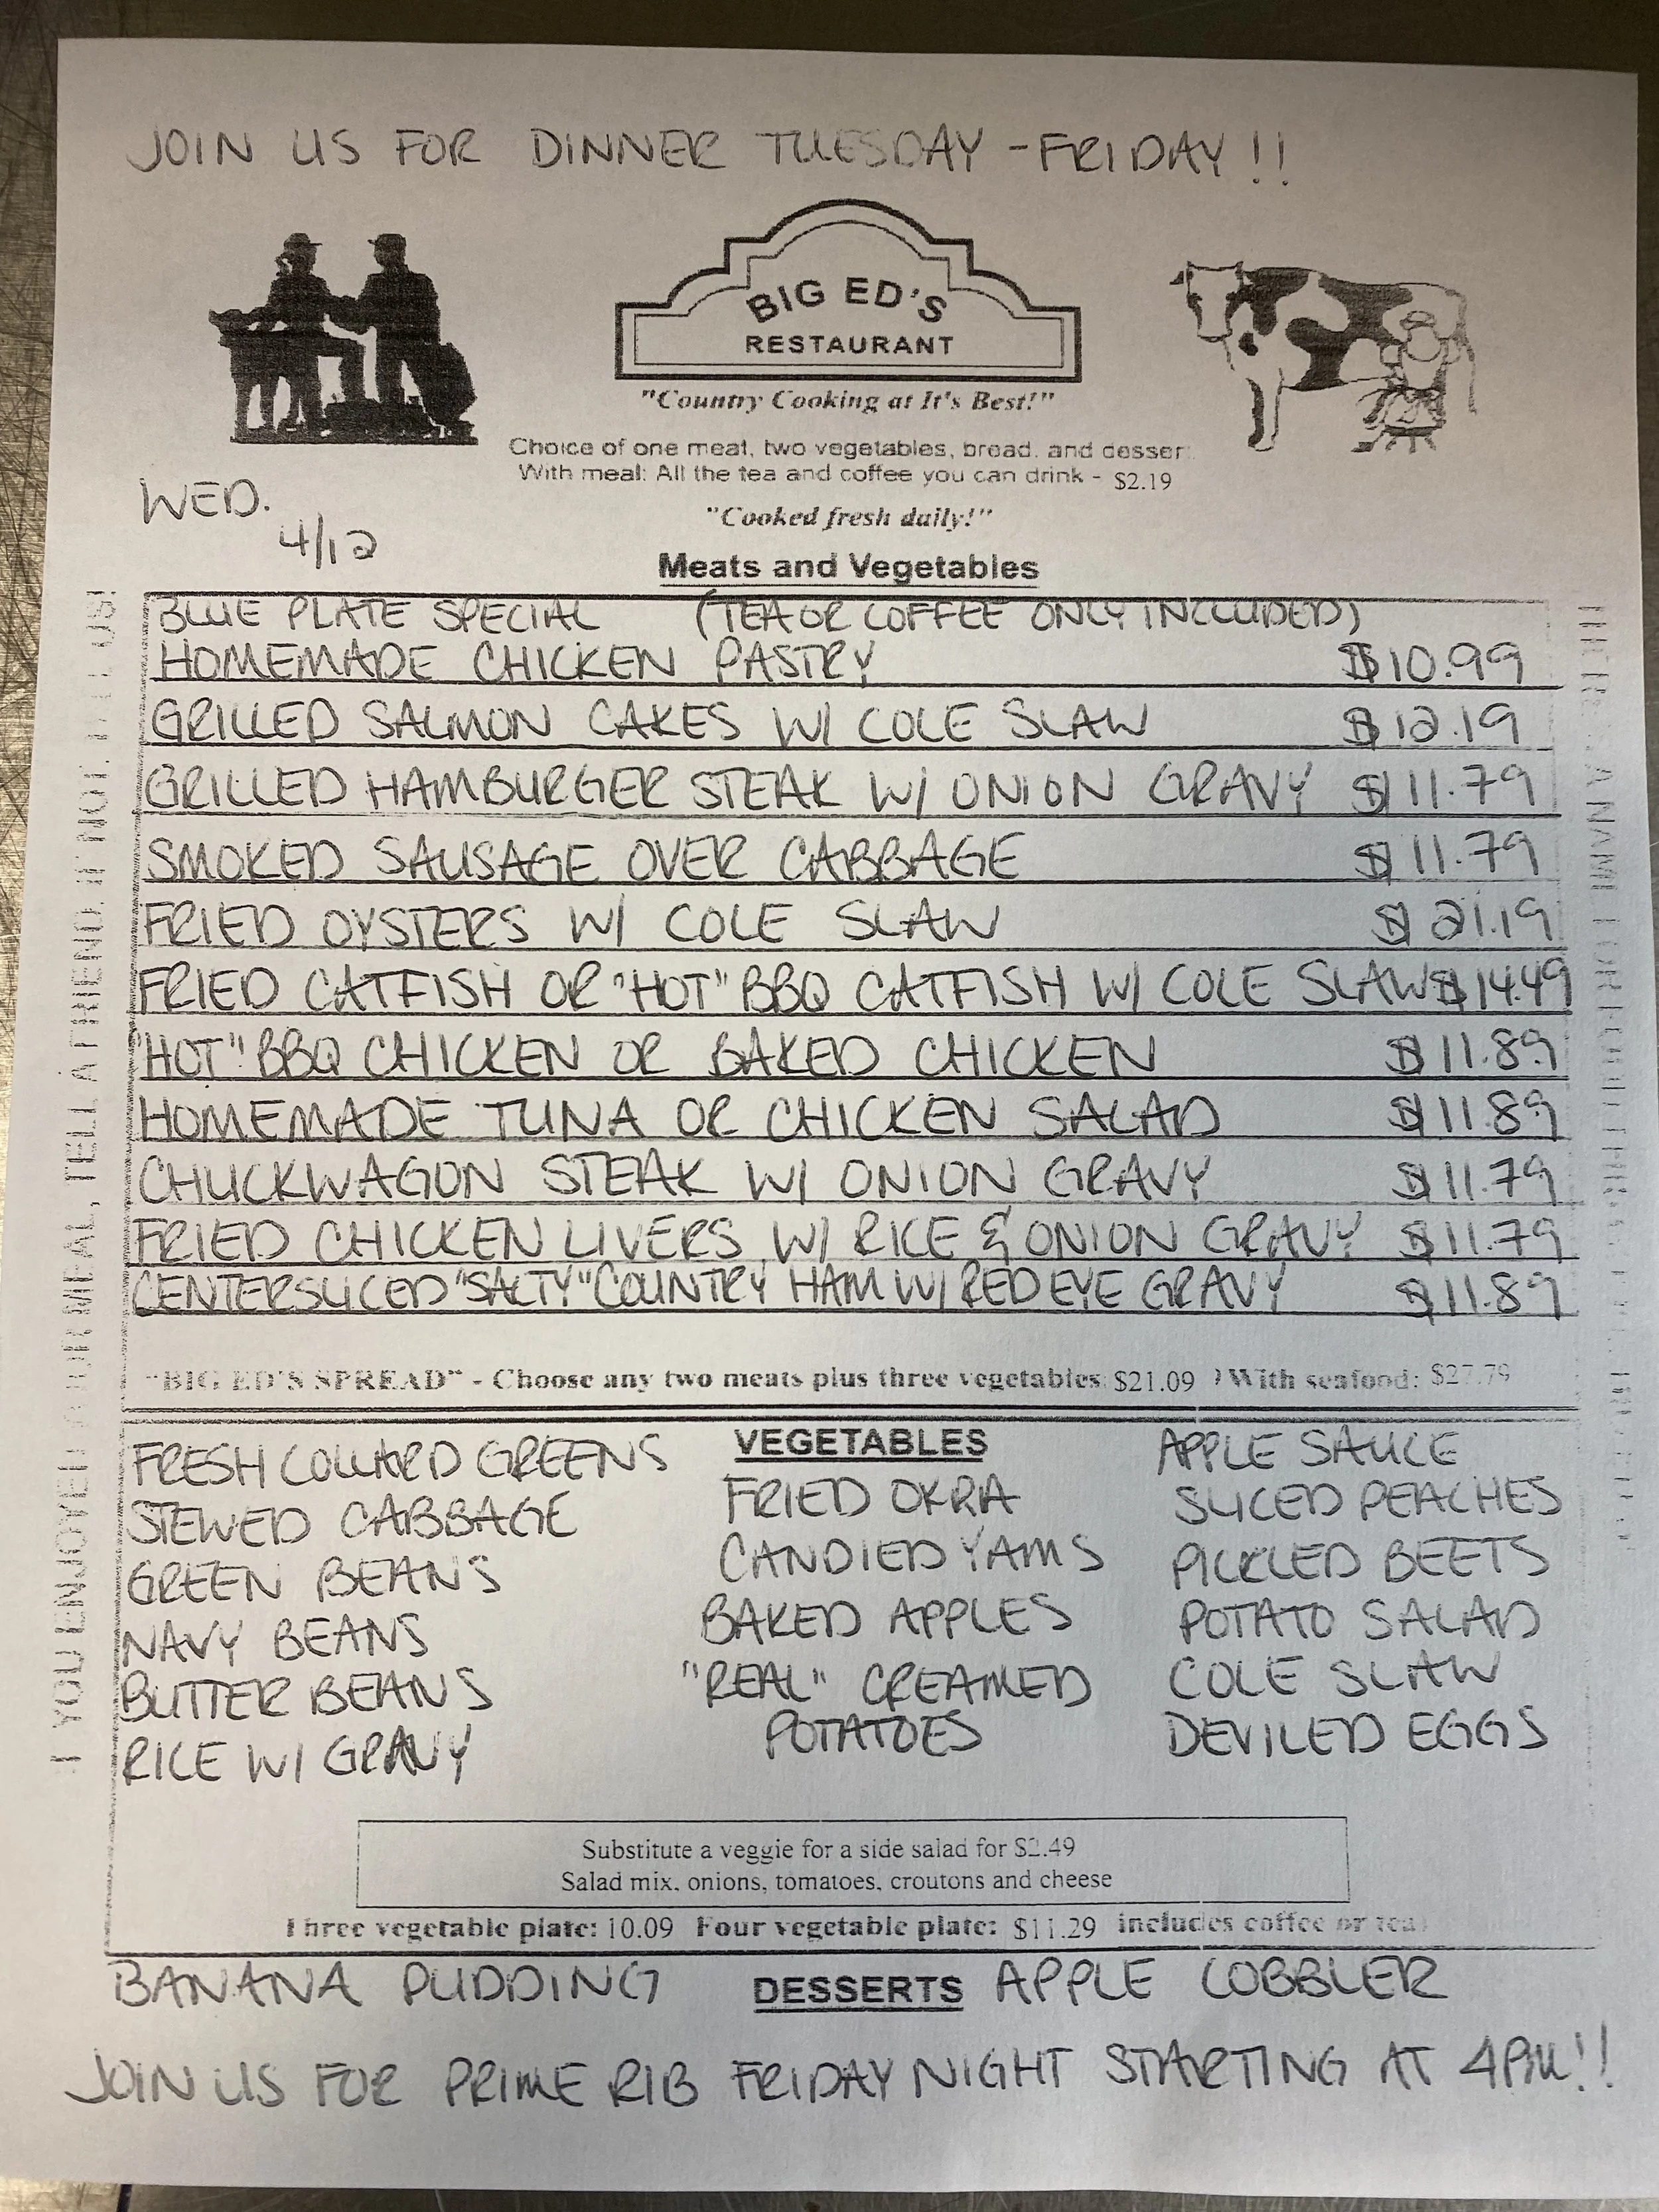 JOIN US FOR DINNER TUESDAY - FRIDAY !!
BIG ED'S
RESTAURANT
"Country Cooking at It's Best!"
Choice of one meat, two vegetables, bread, and desser
With meal: All the tea and coffee you can drink - $2.19
WED.
4/12
"Cooked fresh daily!"
Meats and Vegetables
BLUE PLATE SPECIAL (TEA OR COFFEE ONLY INCLUDED)
HOMEMADE CHICKEN PASTRY $10.99
GRILLED SALMON CAKES W/ COLE SLAW $12.19
GRILLED HAMBURGER STEAK W/ ONION GRAVY $11.79
SMOKED SAUSAGE OVER CABBAGE $11.79
FRIED OYSTERS W/ COLE SLAW $21.19
FRIED CATFISH OR "HOT" BBQ CATFISH W/ COLE SLAW $14.49
"HOT" BBQ CHICKEN OR BAKED CHICKEN $11.89
HOMEMADE TUNA OR CHICKEN SALAD $11.89
CHUCKWAGON STEAK W/ ONION GRAVY $11.79
FRIED CHICKEN LIVERS W/ RICE & ONION GRAVY $11.79
CENTERSLICED "SALTY" COUNTRY HAM W/ RED EYE GRAVY $11.89
"BIG ED'S SPREAD" - Choose any two meats plus three vegetables $21.09 With seafood: $27.79
VEGETABLES
FRESH COLLARD GREENS
STEWED CABBAGE
GREEN BEANS
NAVY BEANS
BUTTER BEANS
RICE W/ GRAVY
FRIED OKRA
CANDIED YAMS
BAKED APPLES
"REAL" CREAMED
POTATOES
APPLE SAUCE
SLICED PEACHES
PICKLED BEETS
POTATO SALAD
COLE SLAW
DEVILED EGGS
Substitute a veggie for a side salad for $2.49
Salad mix, onions, tomatoes, croutons and cheese
Three vegetable plate: 10.09 Four vegetable plate: $11.29 includes coffee or tea
BANANA PUDDING DESSERTS APPLE COBBLER
JOIN US FOR PRIME RIB FRIDAY NIGHT STARTING AT 4PM!!
YOU ENJOYED MEAL, TELL A FRIEND. IF NOT, US!